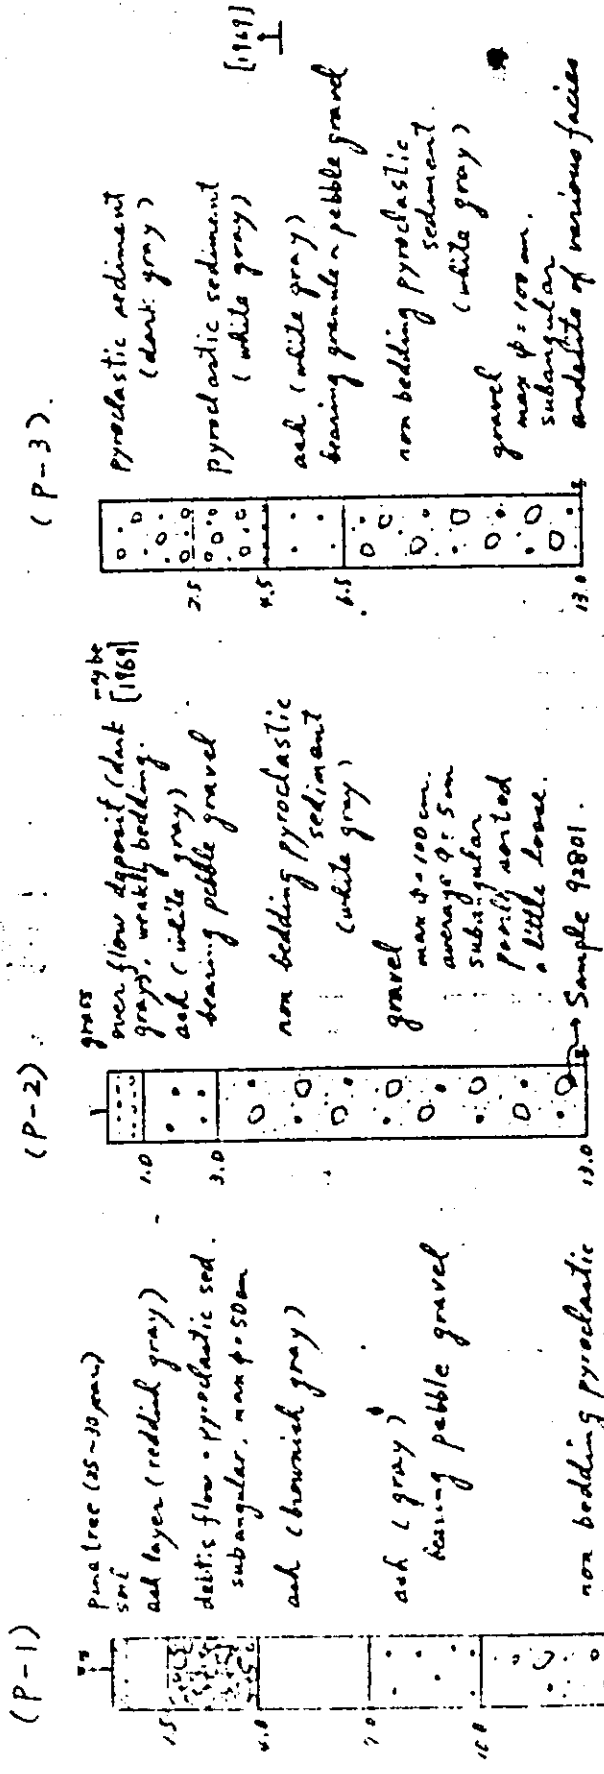 (P-1)
pine tree (25~30 years)
soil
ash layer (reddish gray)
debris flow - pyroclastic sed.
subangular, max φ=50cm
ash (brownish gray)
ash (gray)
bearing pebble gravel
non bedding pyroclastic
1.5
4.0
7.0
10.0
(P-2)
grass
over flow deposit (dark
gray), weakly bedding.
maybe
[1969]
ash (white gray)
bearing pebble gravel
non bedding pyroclastic
sediment
(white gray)
gravel
max φ=100cm.
average φ=5cm
subangular
poorly sorted
a little loose.
Sample 92801.
1.0
3.0
13.0
(P-3).
pyroclastic sediment
(dark gray)
pyroclastic sediment
(white gray)
[1969]
ash (white gray)
bearing granule~pebble gravel
non bedding pyroclastic
sediment.
(white gray)
gravel
max φ=100cm.
subangular
andesite of various facies
2.5
4.5
6.5
13.0